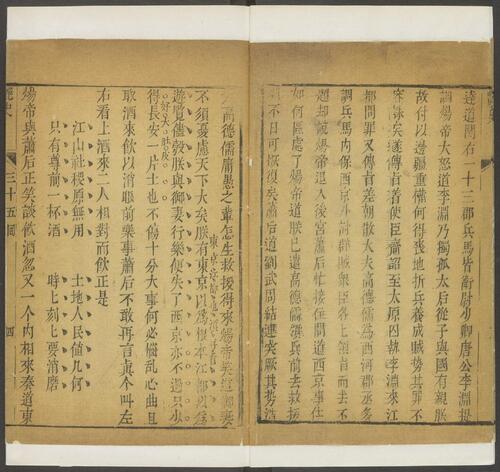 達道關右一十三郡兵馬皆衛尉少卿唐公李淵提
調煬帝大怒道李淵乃獨孤太后從子與國有親朕
故付以邊疆重權何得喪地折兵養成賊勢其罪不
容誅矣遂傳旨着使臣齎詔至太原囚執李淵來江
都問罪又傳旨差朝散大夫高德儒為西河郡丞多
調兵馬內保西京外討群賊眾臣各上領旨而去不
題却說煬帝退入後宮蕭后忙接住問道西京事住
如何區處了煬帝道朕已遣高德儒領兵前去救援
不日可恢復矣蕭后道劉武周結連突厥其勢浩
大高德儒庸愚之輩怎生救援得來煬帝笑道御妻
不須憂慮天下大矣朕有東京以為根本江都
遊覽儘彀朕與御妻行樂便失了西京亦不過只少
得長安一片土也不傷十分大事何必惱亂心曲且
取酒來飲以消眼前樂事蕭后不敢再言真个叫左
右看上酒來二人相對而飲正是
江山社稷原無用 土地人民值几何
只有尊前一杯酒 時上刻上要消磨
煬帝與蕭后正笑談飲酒忽又一个內相來奏道東
艷史 三十五回 四